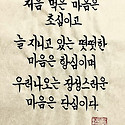 처음 먹은 마음은
초심이고
늘 지니고 있는 떳떳한
마음은 항심이며
우러나오는 정성스러운
마음은 단심이다.